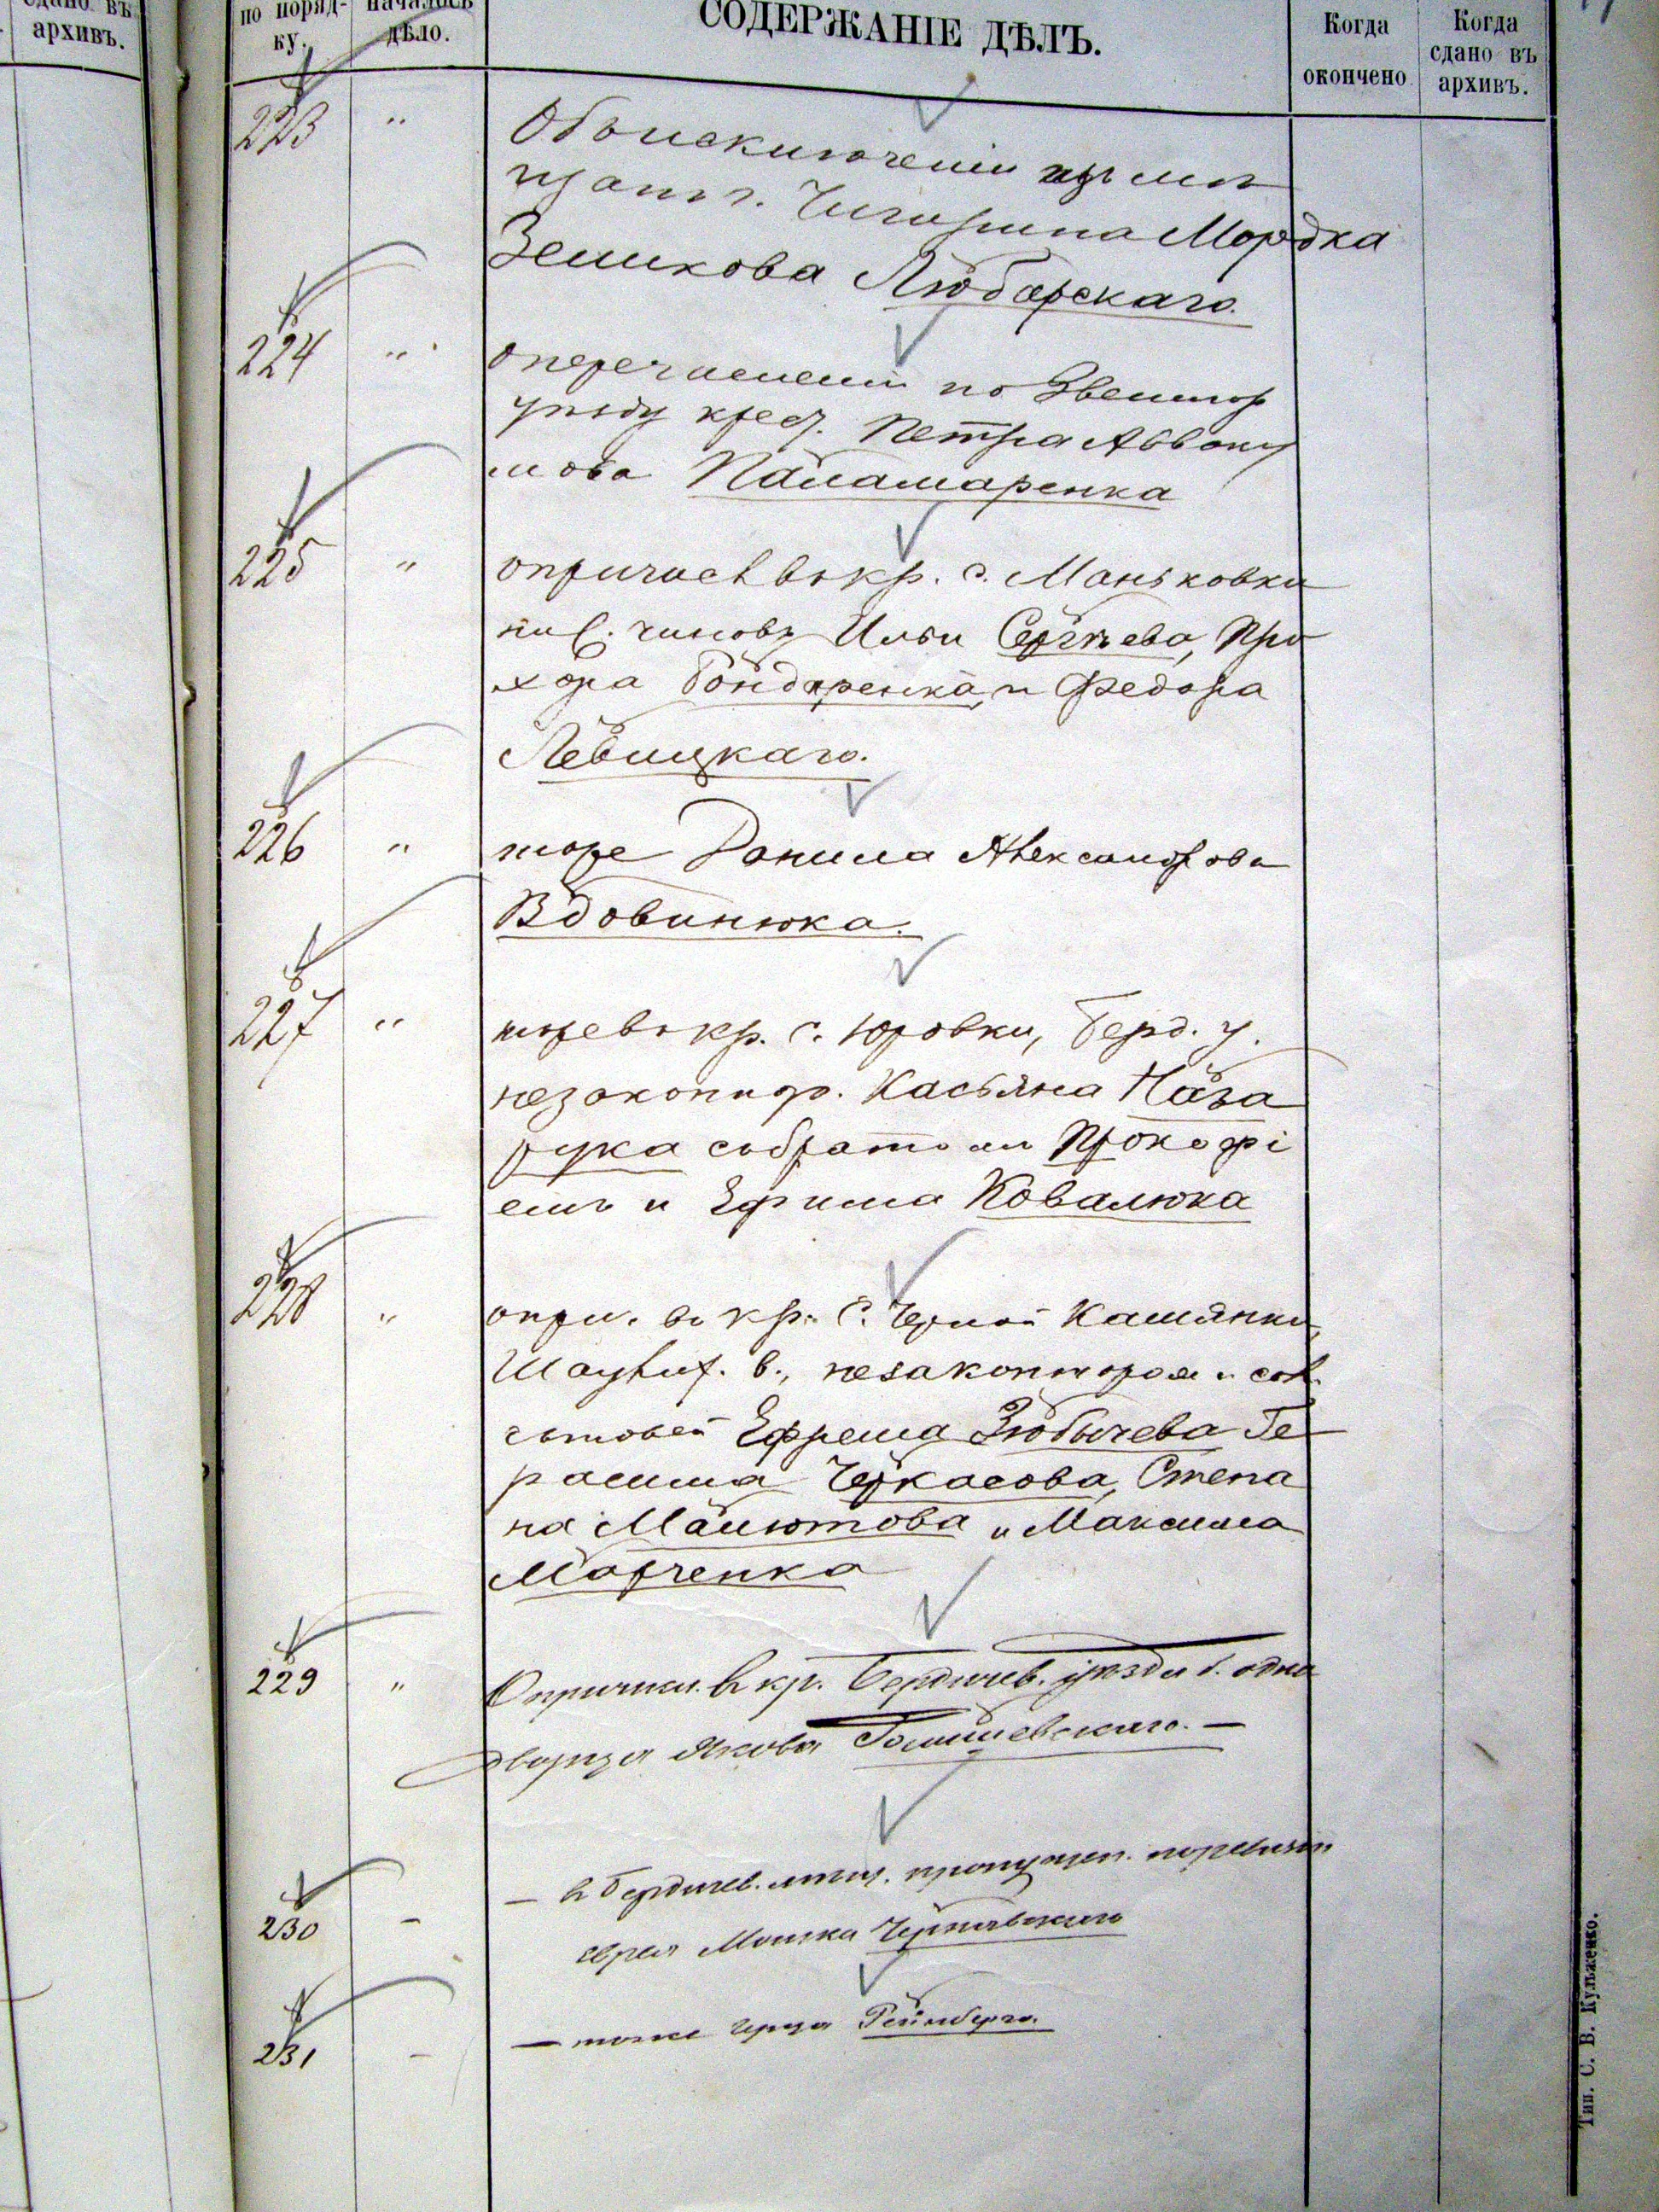 сдано въ
архивъ.
по поряд-
ку.
началось
дѣло.
СОДЕРЖАНІЕ ДѢЛЪ.
Когда
окончено
Когда
сдано въ
архивъ.
223 " Объ исключеніи изъ мѣ
щанъ г. Чигирина Мордка
Зеликова Любарскаго.
224 " О перечисленіи по Звенигор
уѣзду крест. Петра Авваку
мова Паламаренка
225 " о причисл въ кр. с. Маньковки
чиновъ Ильи Сергѣева, Про
хора Бондаренка, и Федора
Левицкаго.
226 " тоже Данила Александрова
Вдовинюка.
227 " тоже въ кр. с. Юровки, Берд. у.
незаконнор. Касьяна Наза
рука съ братомъ Прокофі
емъ и Ефима Ковалюка
228 " о при. въ кр. с. Черной Камянки,
в., незаконнорож и сол.
сыновей Ефрема Зюбычева Ге
расима Черкасова, Степа
на Малютова и Максима
Марченка
229 " О причисл. въ кр. Бердичев. уѣзда б. одно
дворца Якова
230 - — въ Бердичев. мѣщ. пропущен. по ревизіи
еврея Мошка Чернявскаго
231 - — тоже Герца Рейнберга.
Тип. С. В. Кульженко.